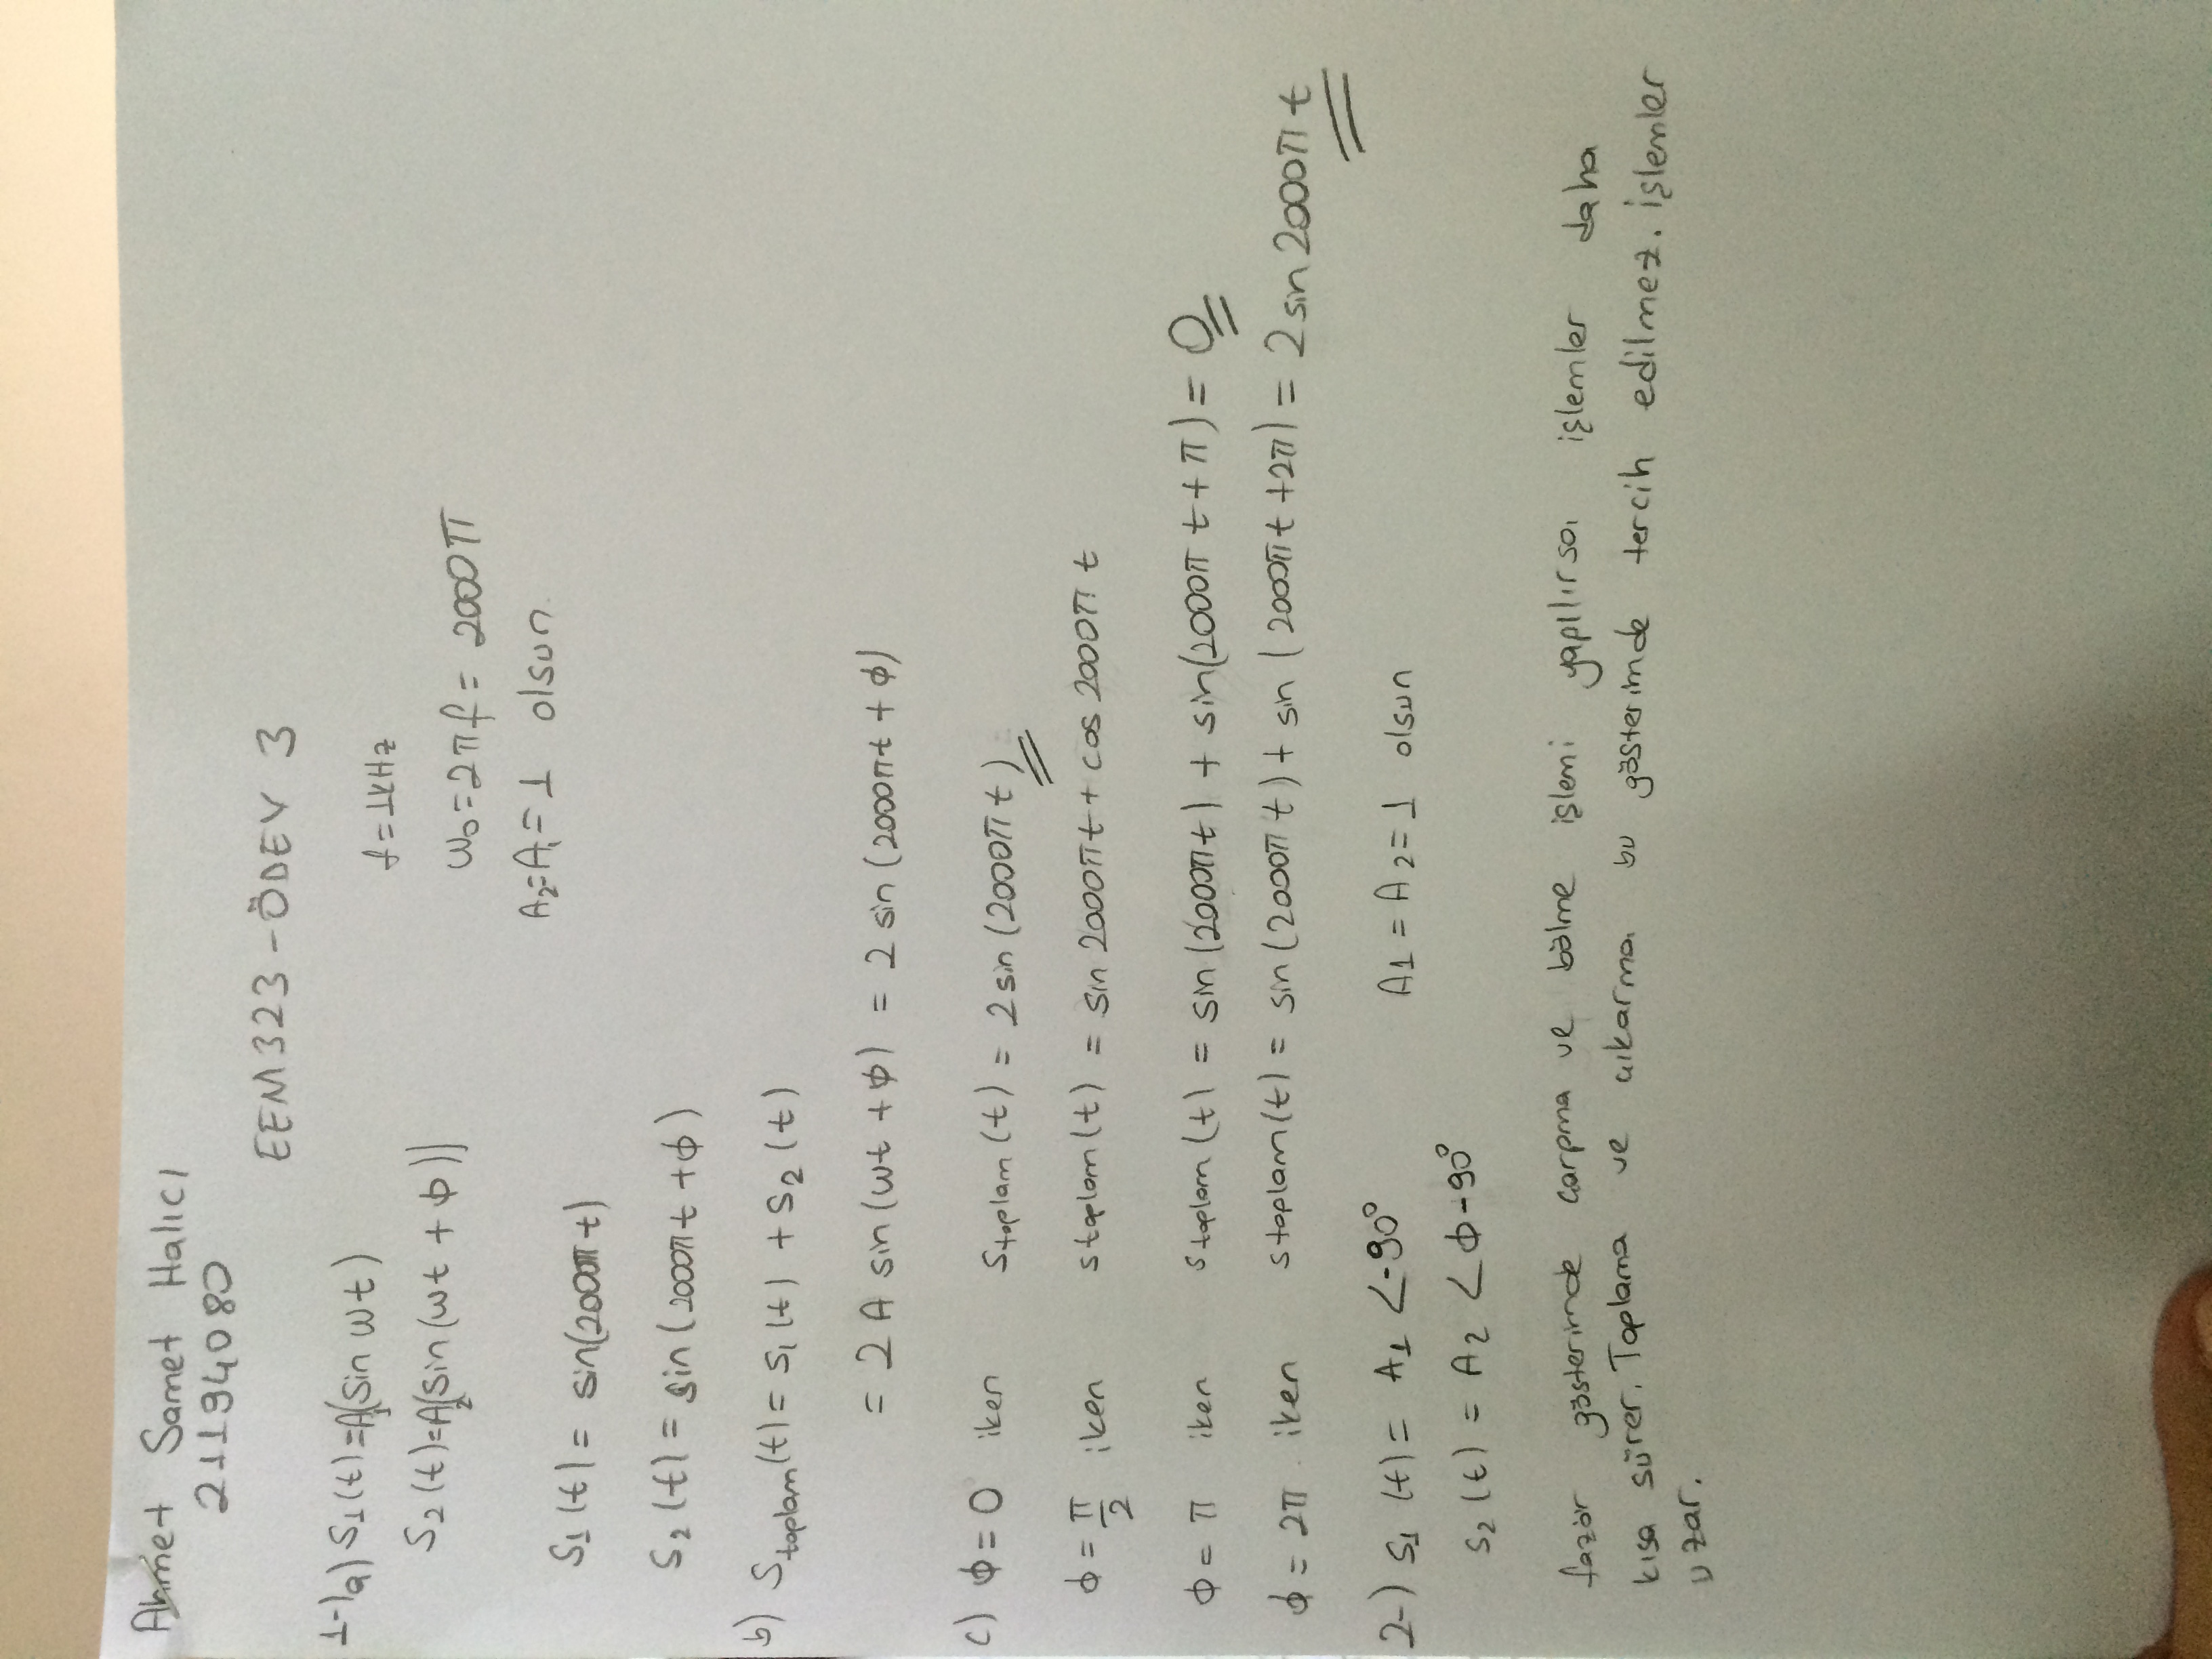 Ahmet Samet Halıcı
21194080
EEM323-ÖDEV 3
1-)a) S1(t)=A1(sin wt)
f=1kHz
S2(t)=A2[sin(wt + ϕ)]
w0=2πf= 2000π
A2=A1=1 olsun
S1(t)= sin(2000πt)
S2(t)= sin(2000πt +ϕ)
b) Stoplam(t)= S1(t) + S2(t)
= 2A sin(wt +ϕ) = 2 sin(2000πt + ϕ)
c) ϕ=0 iken Stoplam(t) = 2 sin(2000π t)
ϕ = π/2 iken stoplam(t) = sin 2000πt + cos 2000π t
ϕ = π iken stoplam(t) = sin(2000πt) + sin(2000π t + π) = 0
ϕ = 2π iken stoplam(t) = sin(2000π t) + sin(2000πt +2π) = 2 sin 2000π t
2-) S1(t)= A1 <-90° A1 = A2=1 olsun
S2(t) = A2 <ϕ-90°
fazör gösterimde çarpma ve bölme işlemi yapılırsa işlemler daha
kısa sürer. Toplama ve çıkarma bu gösterimde tercih edilmez. işlemler
uzar.